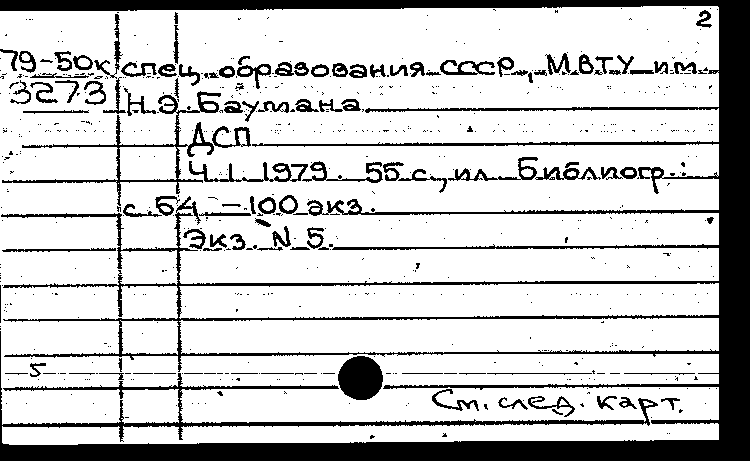 2
79-50к спец. образования СССР, МВТУ им.
3273 Н.Э. Баумана.
ДСП
Ч. 1. 1979. 55 с., ил. Библиогр.:
с. 54. - 100 экз.
Экз. N 5.
5
См. след. карт.